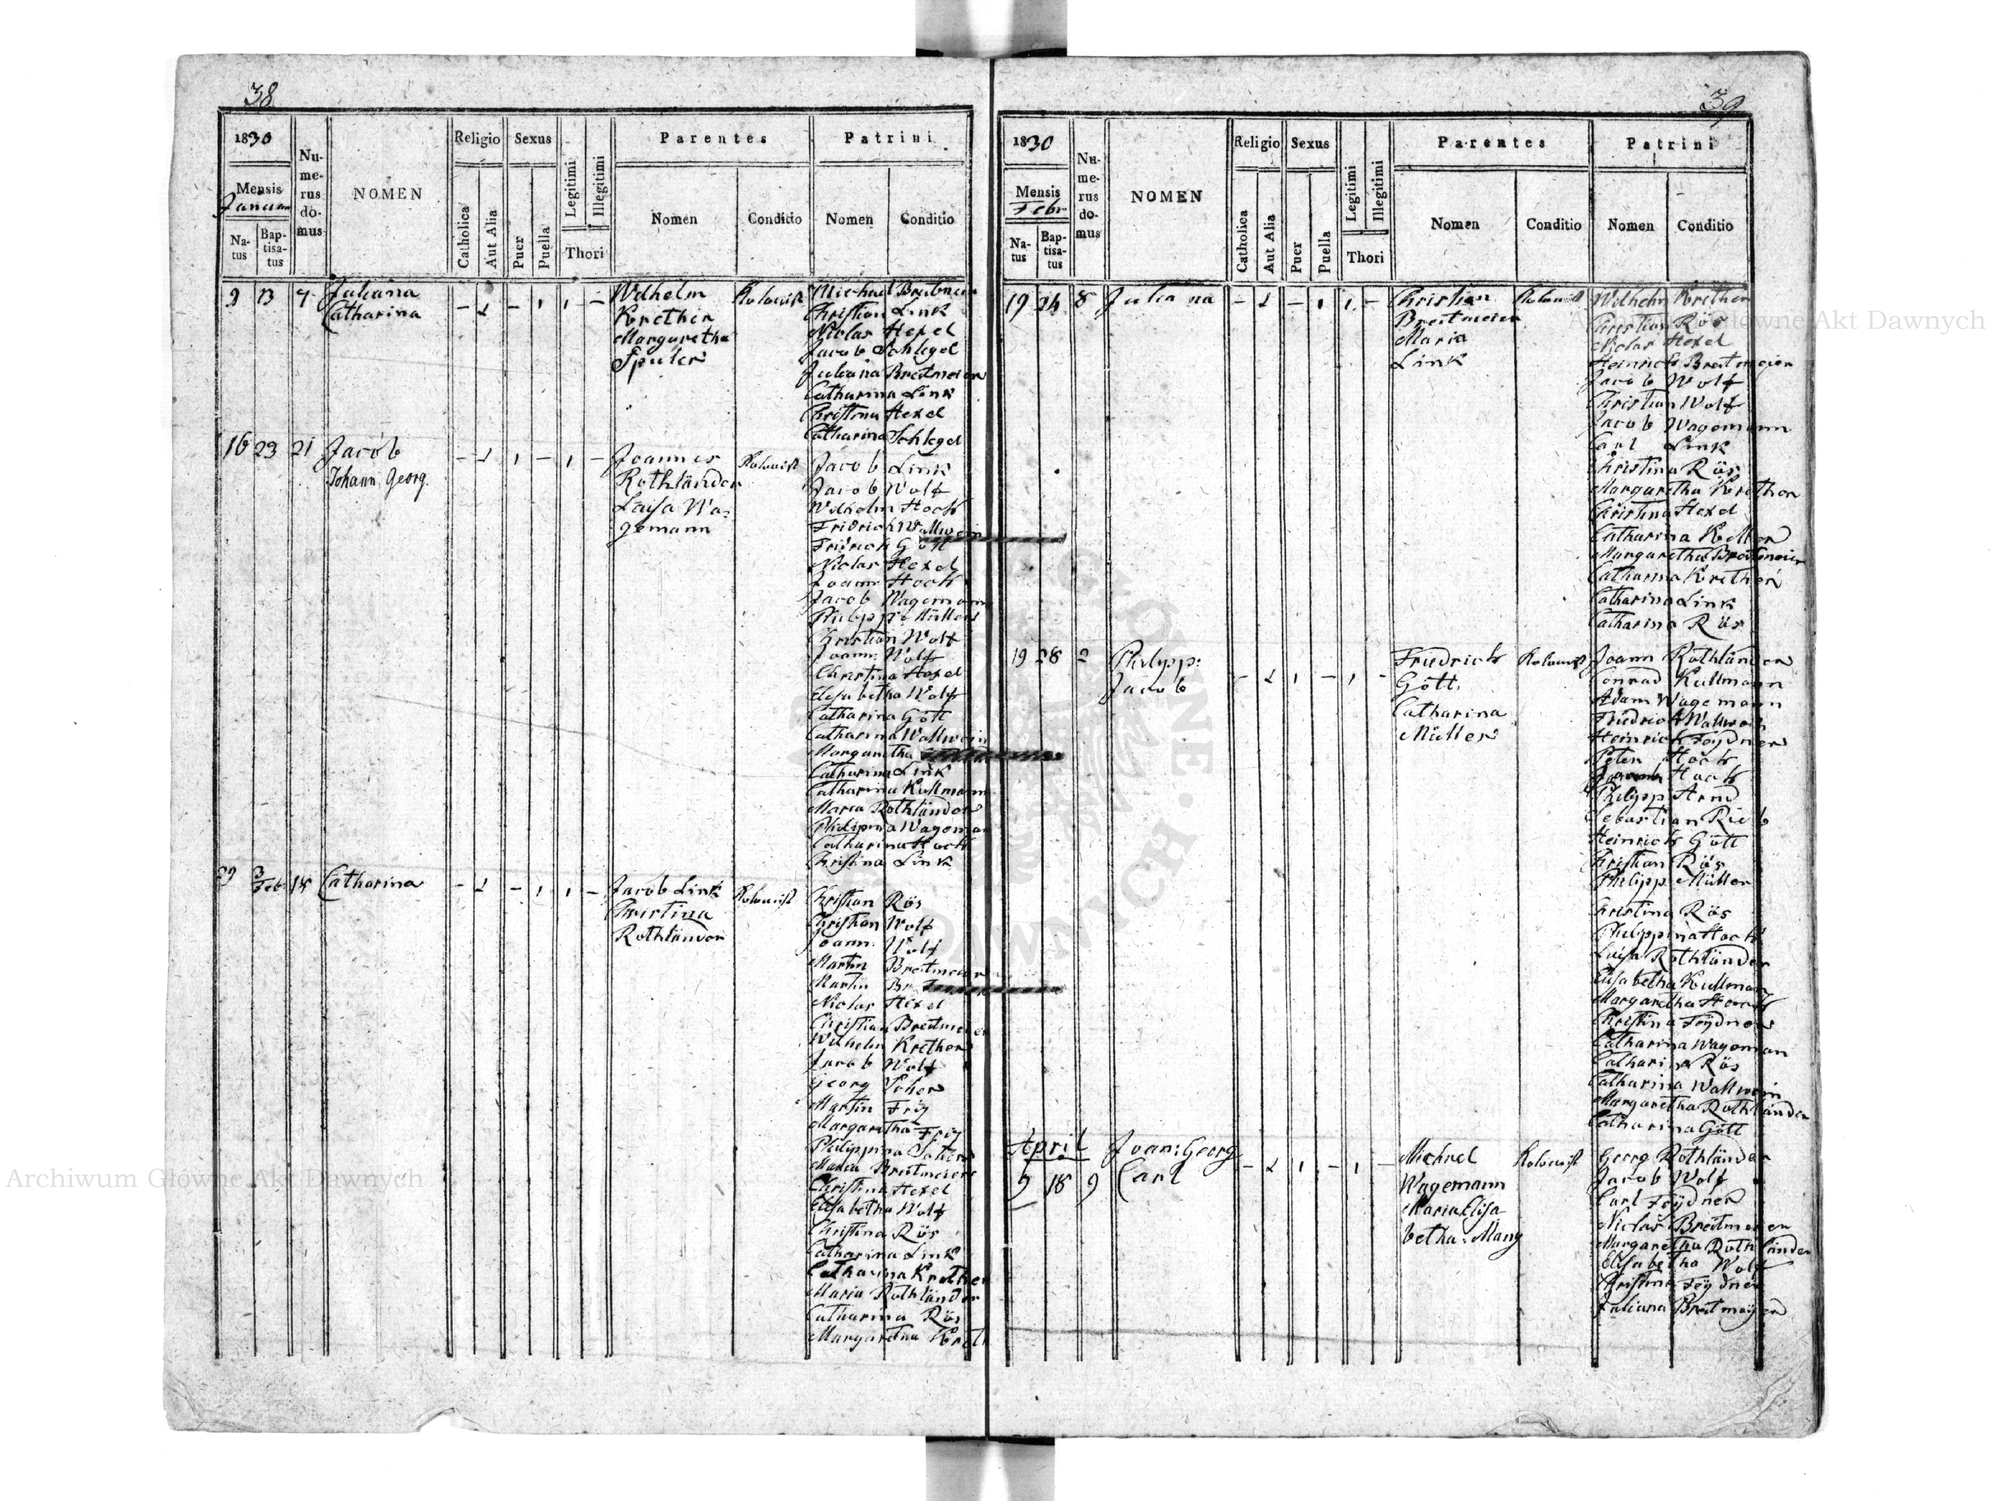 38
1830
Mensis
Januar
Na-
tus
Bap-
tisa-
tus
Nu-
me-
rus
do-
mus
NOMEN
Religio
Catholica
Aut Alia
Sexus
Puer
Puella
Legitimi
Illegitimi
Thori
Parentes
Nomen
Conditio
Patrini
Nomen
Conditio
9 13 7 Juliana
Catharina
Wilhelm
Krether
Margaretha
Spuler
Kolonist
Michael Breitmeier
Christian Link
Niclas Hexel
Jacob Schlegel
Juliana Breitmeier
Catharina Link
Christina Hexel
Catharina Schlegel
16 23 21 Jacob
Johann Georg.
Joannes
Rothländer
Luisa Wa-
gemann
Kolonist
Jacob Link
Jacob Wolf
Wilhelm Hoch
Fridrich Wallwein
Fridrich Gött
Niclas Hexel
Joann Hoch
Jacob Wagemann
Philipp Müller
Christian Wolf
Joann Wolf
Christina Hexel
Elisabetha Wolf
Catharina Gött
Catharina Wallwein
Margaretha
Catharina Link
Catharina Kullmann
Maria Rothländer
Philipina Wageman
Catharina Hoch
Christina Link
29 3
Feb 18 Catharina
Jacob Link
Christina
Rothländer
Kolonist
Christian Rös
Christian Wolf
Joann. Wolf
Martin Breitmeier
Martin Br
Niclas Hexel
Christian Breitmeyer
Wilhelm Krether
Jacob Wolf
Georg
Martin Frey
Margaretha Frey
Philippina
Maria Breitmeier
Christina Hexel
Elisabetha Wolf
Christina Rös
Catharina Link
Catharina Krether
Maria Rothländer
Catharina Rös
Margaretha Kreth
39
1830
Mensis
Febr
Na-
tus
Bap-
tisa-
tus
Nu-
me-
rus
do-
mus
NOMEN
Religio
Catholica
Aut Alia
Sexus
Puer
Puella
Legitimi
Illegitimi
Thori
Parentes
Nomen
Conditio
Patrini
Nomen
Conditio
19 24 8 Juliana
Christian
Breitmeier
Maria
Link
Kolonist
Wilhelm Krether
Christian Rös
Niclas Hexel
Heinrich Breitmeier
Jacob Wolf
Christian Wolf
Jacob Wagemann
Carl Link
Christina Rös
Margaretha Krether
Christina Hexel
Catharina Keller
Margaretha Breitmeier
Catharina Krether
Catharina Link
Catharina Rös
19 28 2 Philipp:
Jacob
Friedrich
Gött.
Catharina
Müller
Kolonist
Joann Rothländer
Conrad Kullmann
Adam Wagemann
Friedrich Wallwein
Heinrich Feydner
Peter Hoch
Hoch
Philipp Arnd
Sebastian Rieb
Heinrich Gött
Christian Rös
Philipp Müller
Christina Rös
Philippina Hoch
Luisa Rothländer
Elisabetha Kullman
Margaretha Hoch
Christina Feydner
Catharina Wageman
Catharina Rös
Catharina Wallwein
Margaretha Rothländer
Catharina Gött
April
9 18 9 Joan: Georg
Carl
Michael
Wagemann
Maria Elisa
betha: Mang
Kolonist
Georg Rothländer
Jacob Wolf
Carl Feydner
Niclas Breitmeyer
Margaretha Rothländer
Elisabetha Wolf
Christina Feydner
Juliana Breitmayer
Archiwum Główne Akt Dawnych
Archiwum Główne Akt Dawnych